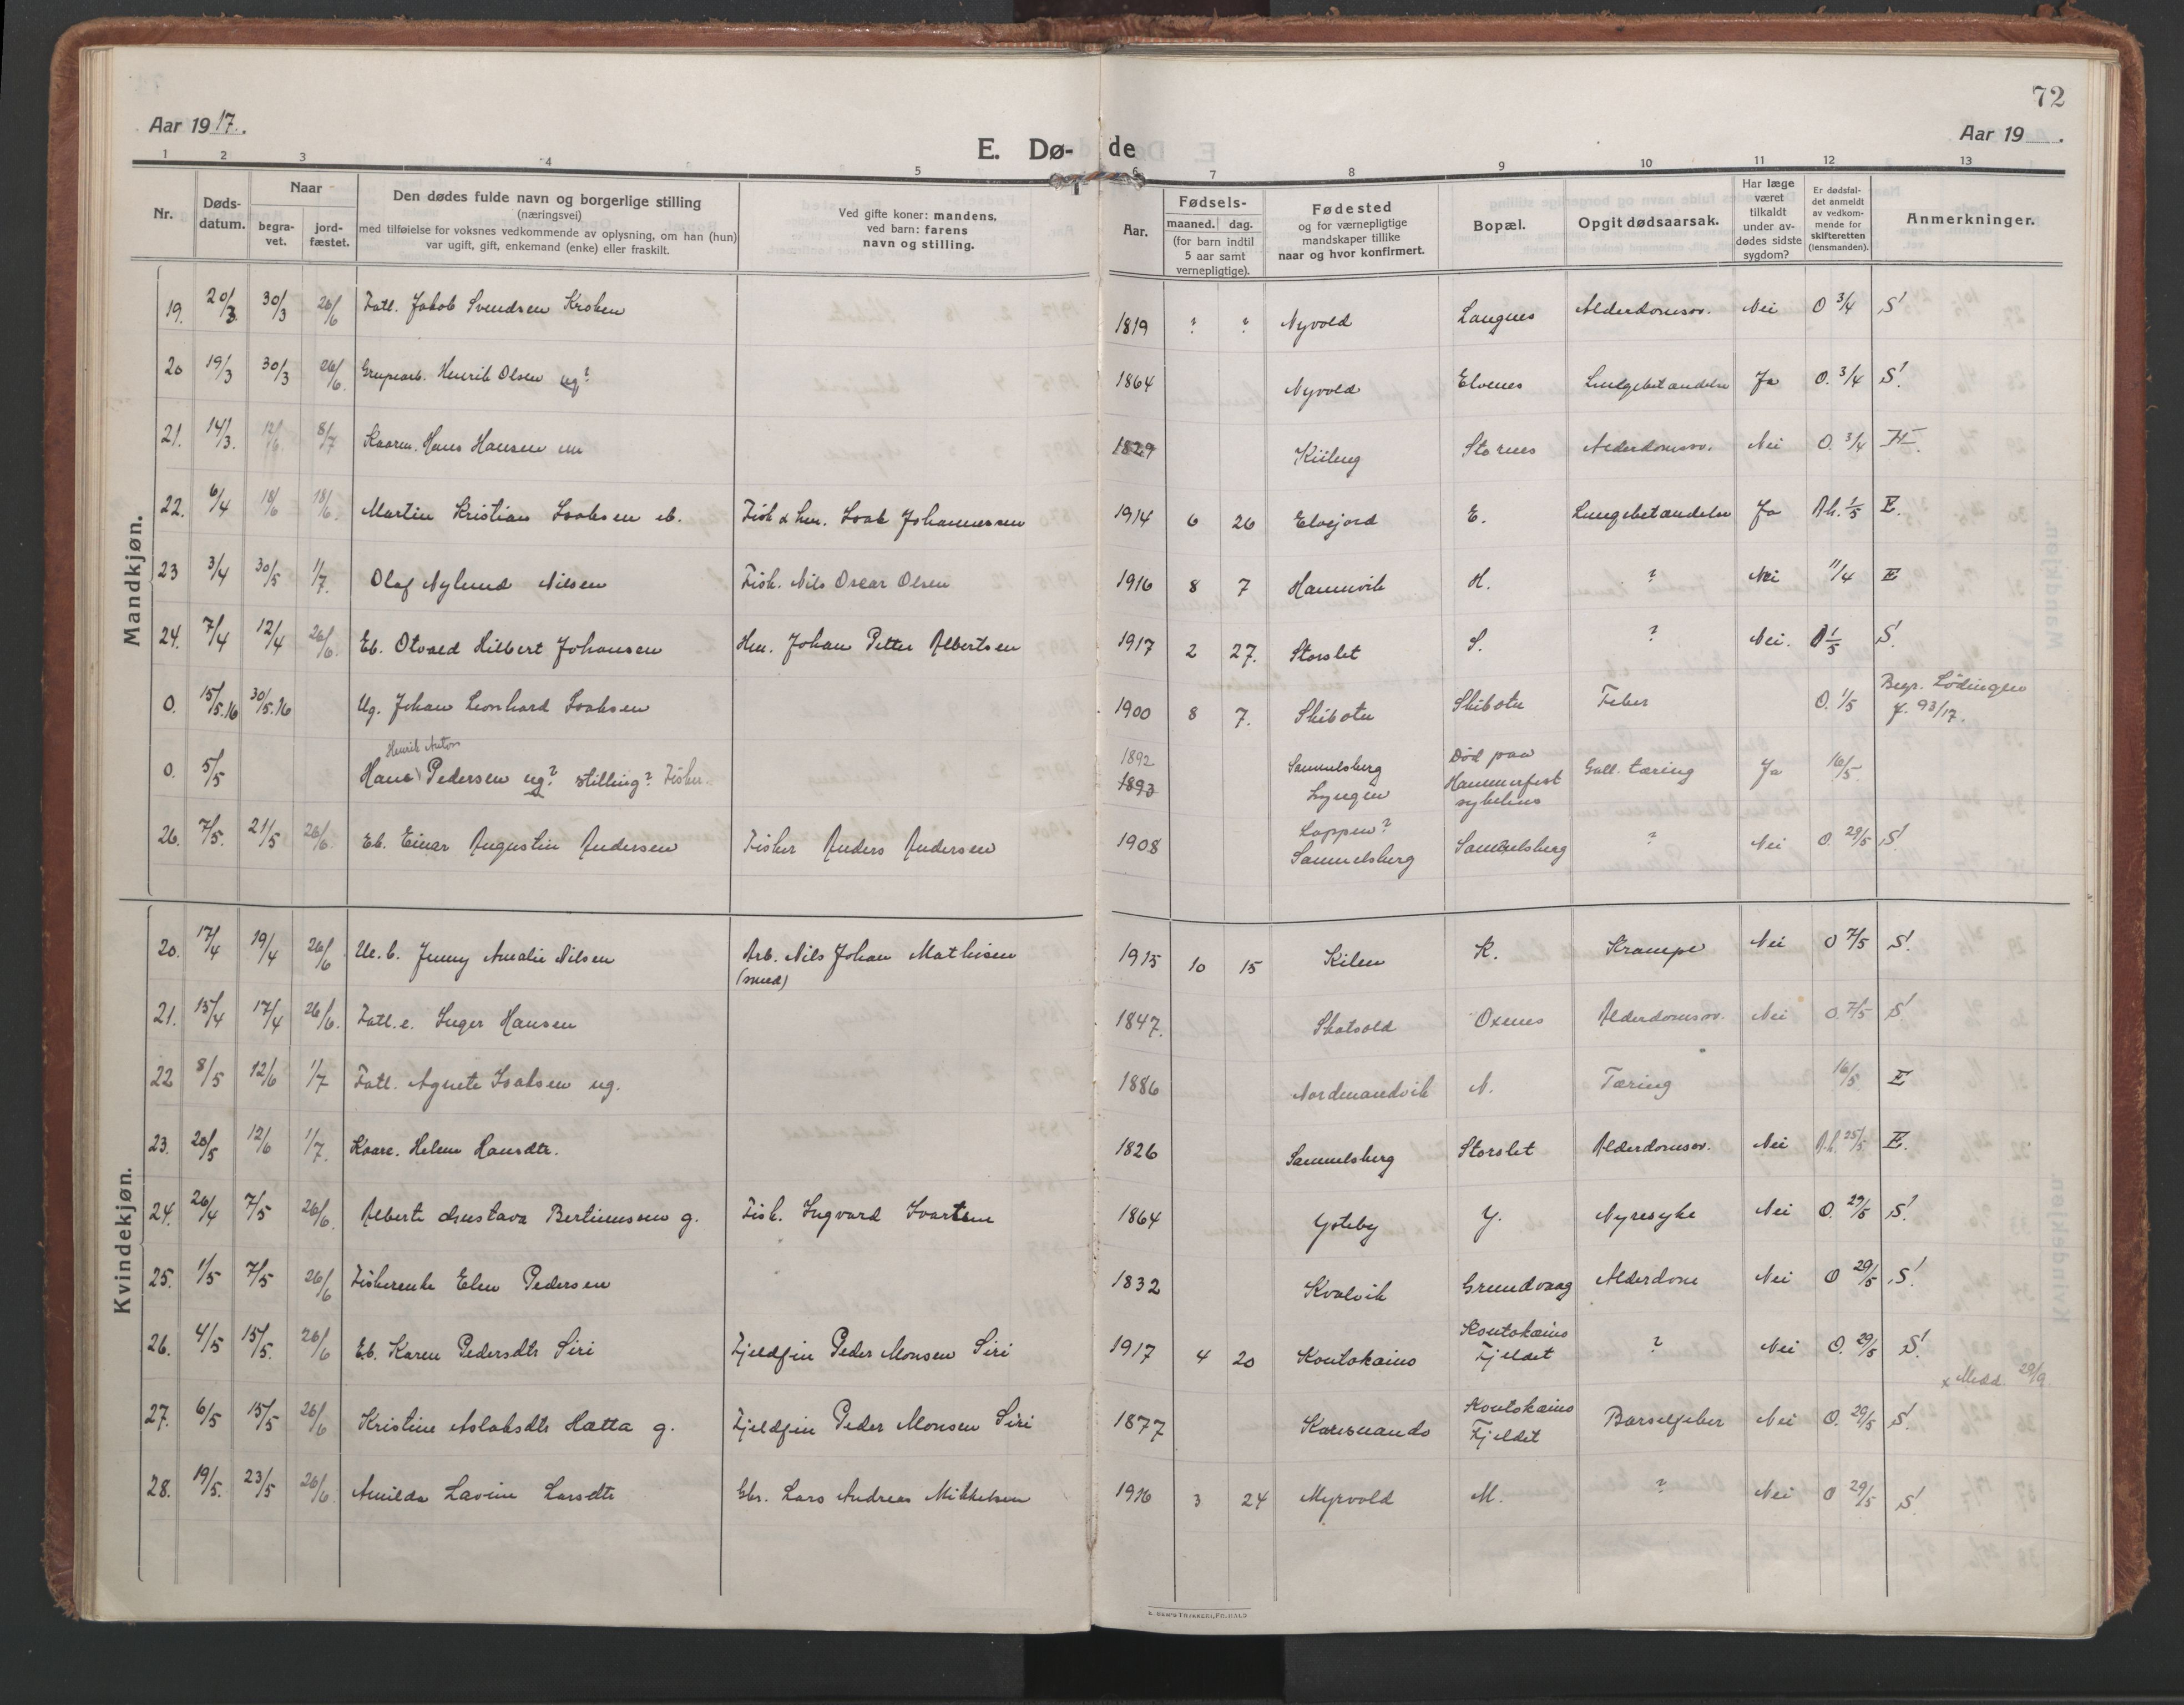 72
Aar 1917.
Aar 19
E. Dø- de
1 2 3 4 5 6 7 8 9 10 11 12 13
Nr.
Døds-
datum.
Naar
begra-
vet.
jord-
fæstet.
Den dødes fulde navn og borgerlige stilling
(næringsvei)
med tilføielse for voksnes vedkommende av oplysning, om han (hun)
var ugift, gift, enkemand (enke) eller fraskilt.
Ved gifte koner: mandens,
ved barn: farens
navn og stilling.
Aar.
Fødsels-
maaned. dag.
(for barn indtil
5 aar samt
vernepligtige).
Fødested
og for værnepligtige
mandskaper tillike
naar og hvor konfirmert.
Bopæl.
Opgit dødsaarsak.
Har læge
været
tilkaldt
under av-
dødes sidste
sygdom?
Er dødsfal-
det anmeldt
av vedkom-
mende for
skifteretten
(lensmanden).
Anmerkninger.
Mandkjøn.
19. 20/3 30/3 26/6 Fatl. Jakob Svendsen Kroken 1819 ? ? Nyvold Langnes Alderdomssv. Nei O 3/4 S!
20 19/3 30/3 26/6. Grupearb. Henrik Olsen ug? 1864 Nyvold Elvenes Lungebetændelse Ja O. 3/4 S!
21. 14/3. 12/6. 8/7 Kaarm. Hans Hansen em 1829 Kiileng Stornes Alderdomssv. Nei O. 3/4
22. 6/4 18/6 18/6. Martin Kristian Isaksen eb. Fisk & hen. Isak Johannessen 1914 6 26 Elvejord E. Lungebetændelse Ja Ah. 1/5 E.
23 3/4 30/5 1/7. Olaf Nylund Nilsen Fisk. Nils Oscar Olsen 1916 8 7 Hannvik H. ? Nei 11/4 E
24. 7/4 12/4 26/6. Eb. Otvald Hilbert Johansen Hen. Johan Petter Albertsen 1917 2 27. Storslet S. ? Nei. O 1/5 S!
0. 15/5.16 30/5.16 Ug. Johan Leonhard Isaksen 1900 8 7. Skibotn Skibotn Feber O. 1/5 Begr. Lødingen
J. 93/17.
Henrik Anton
0. 5/5 Hans Pedersen ug? stilling? Fisker. 1892
1893 Samuelsberg
Lyngen Død paa
Hammerfest
sykehus Gall. tæring Ja 16/5
26. 7/5. 21/5 26/6. Eb. Einar Augustin Andersen Fisker Anders Andersen 1908 Loppen?
Samuelsberg Samuelsberg ? Nei O. 29/5 S!
Kvindekjøn.
20. 17/4 19/4 26/6 Ue. b. Jenny Amalie Nilsen Arb. Nils Johan Mathisen
(smed) 1915 10 15 Kilen K. Krampe Nei O 7/5 S!
21. 15/4 17/4 26/6. Fatl. e. Inger Hansen 1847. Skatvold Oxnes Alderdomssv. Nei O. 7/5 S!
22 8/5 12/6 1/7 Fatl. Agnete Isaksen ug. 1886 Nordmandvik N. Tæring 16/5 E
23. 20/5 12/6 1/7. Kaare. Helene Hansdtr. 1826 Samuelsberg Storslet Alderdomssv. Nei Ah. 25/5 E.
24. 26/4 7/5 26/6. Alberte Gustava Bertinussen g. Fisk. Ingvard Ivartsen 1864 Yteby Y. Nyresyke Nei O. 29/5 S!
25. 1/5 7/5 26/6 Fiskerenke Elen Pedersen 1832 Kvalvik Grundvaag Alderdom Nei O 29/5 S!
26. 4/5 15/5. 26/6 Eb. Karen Pedersdtr Siri Fjeldfin Peder Monsen Siri 1917 4 20 Koutokeino Koutokeino
Fjeldet ? Nei O. 29/5 S!
x Medd. 29/9
27. 6/5 15/5 26/6 Kristine Aslaksdtr Hætta g. Fjeldfin Peder Monsen Siri 1877 Karesuando Koutokeino
Fjeldet Barselfeber Nei O. 29/5 S!
28. 19/5. 23/5 26/6. Amilda Lavine Larsdtr Gbr. Lars Andreas Mikkelsen 1916 3 24 Myrvold M. ? Nei O 29/5 S!